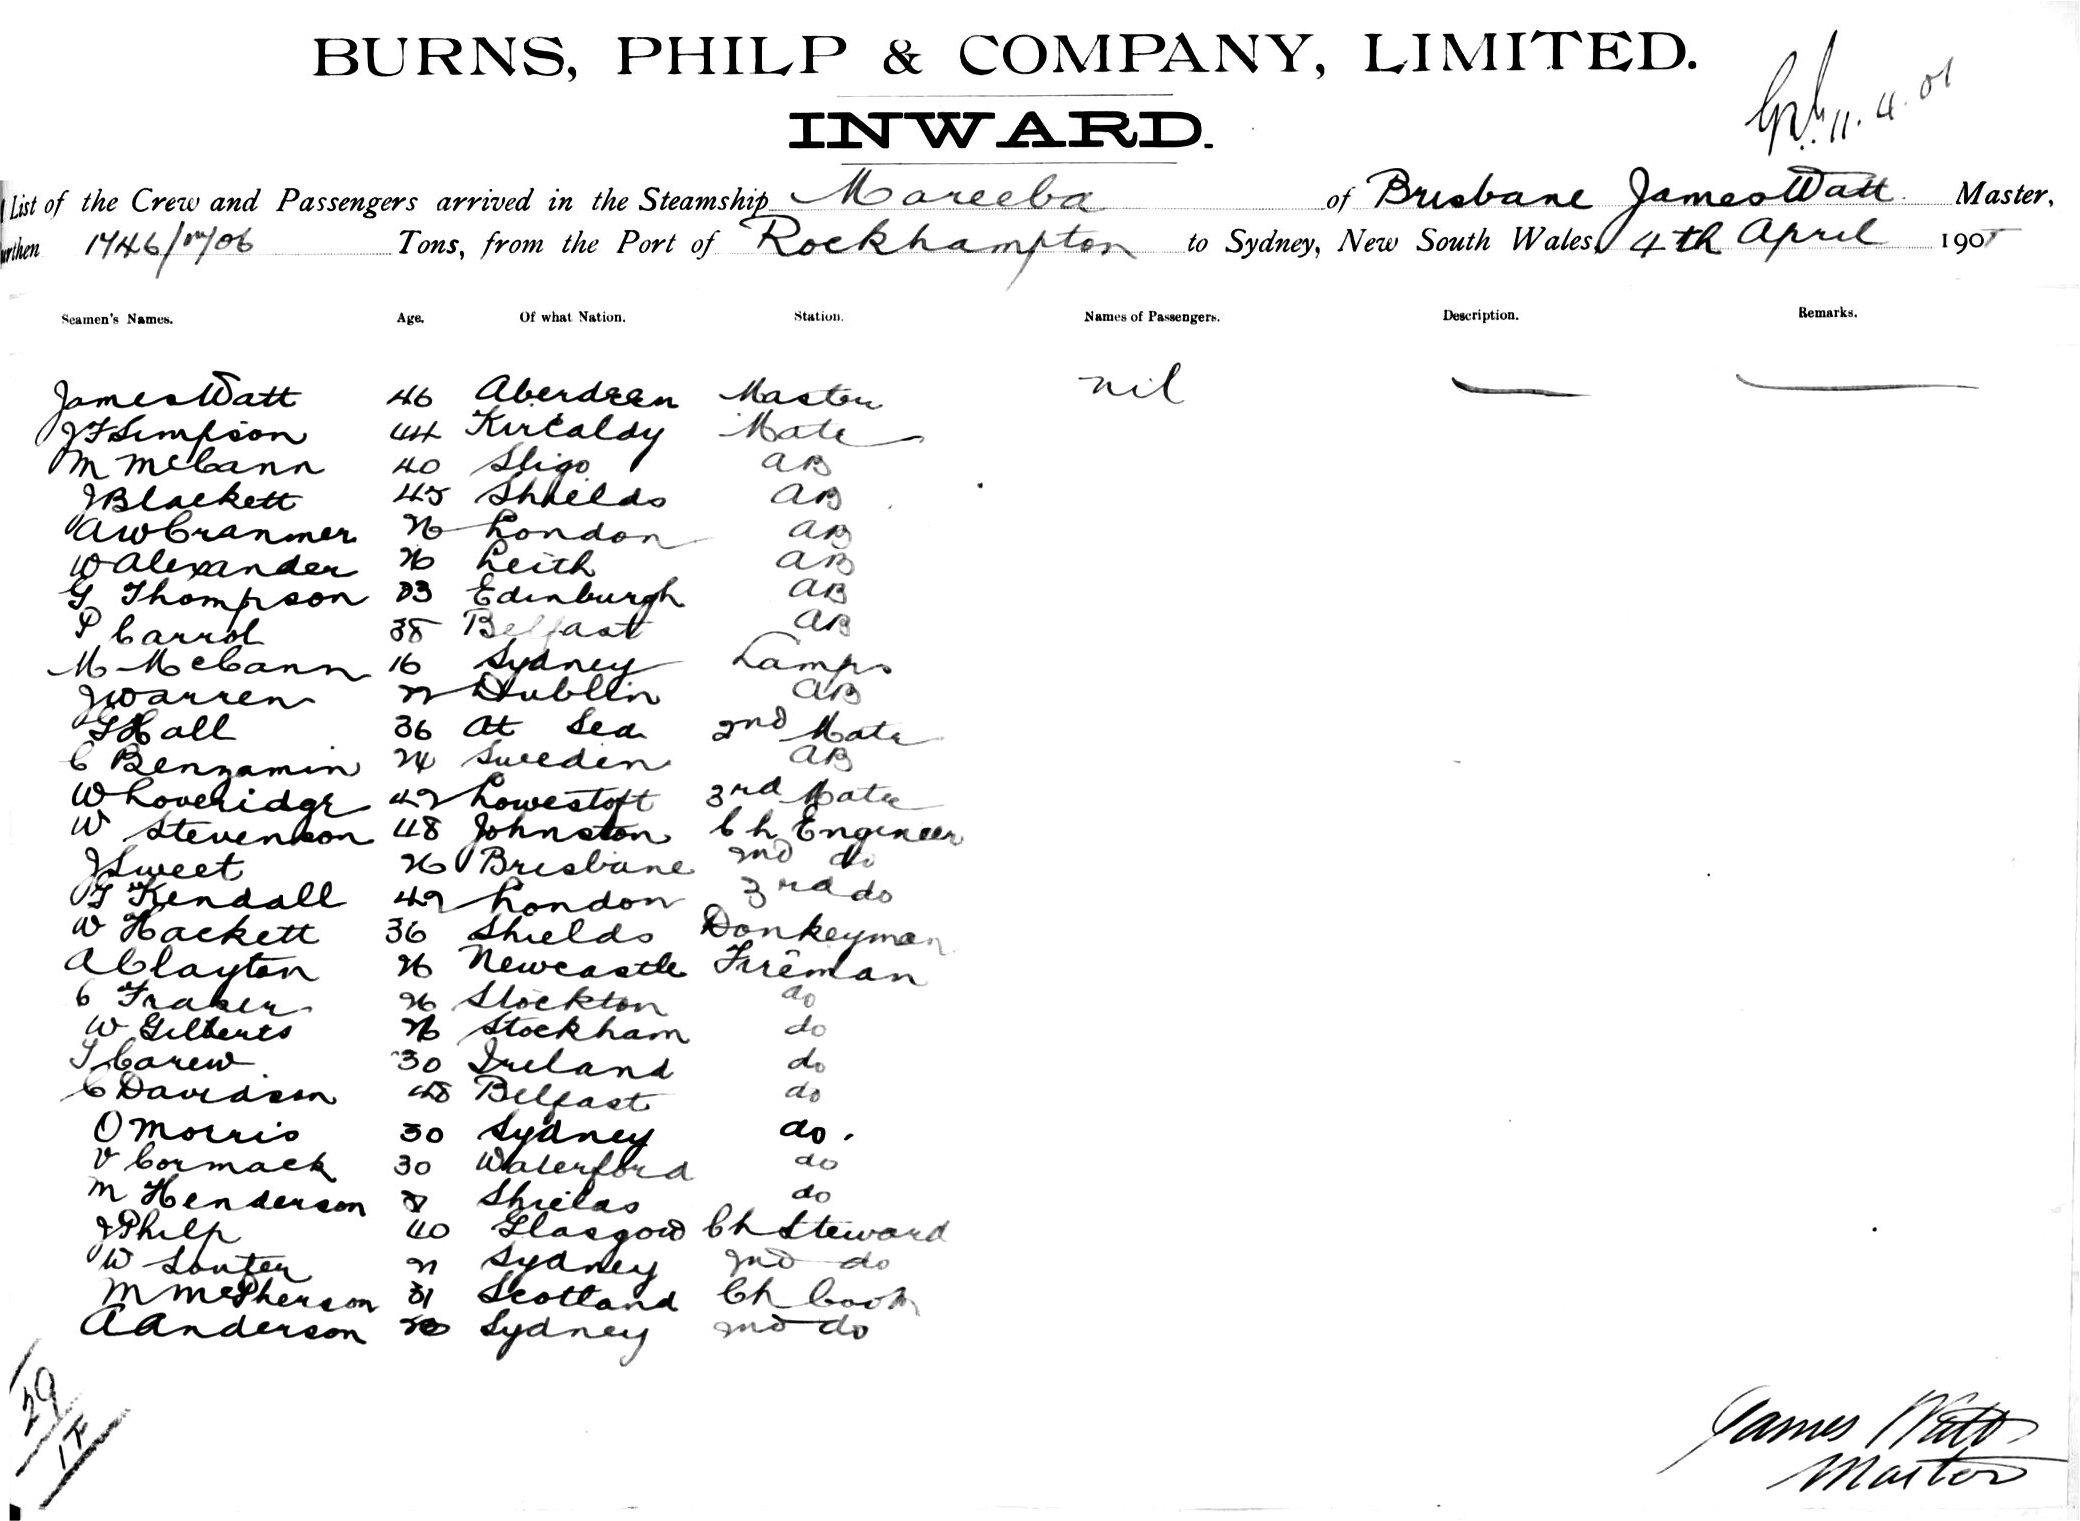 BURNS, PHILP & COMPANY, LIMITED.
INWARD.
11. 4. 01
List of the Crew and Passengers arrived in the Steamship Mareeba of Brisbane James Watt Master,
urthen 1746 Tons, from the Port of Rockhampton to Sydney, New South Wales, 4th April 190
Seamen's Names. Age. Of what Nation. Station. Names of Passengers. Description. Remarks.
James Watt 46 Aberdeen Master nil
J F Simpson 44 Kircaldy Mate
M McCann 40 Sligo AB
J Blackett 45 Shields AB
A W Cranmer 26 London AB
W Alexander 26 Leith AB
G Thompson 33 Edinburgh AB
P Carrol 38 Belfast AB
M McCann 16 Sydney Lamps
J Warren 22 Dublin AB
G Hall 36 At Sea 2nd Mate
C Benzamin 24 Sweden AB
W Loveridge 42 Lowestoft 3rd Mate
W Stevenson 48 Johnston Ch Engineer
J Sweet 26 Brisbane 2nd do
T Kendall 42 London 3rd do
W Hackett 36 Shields Donkeyman
A Clayton 26 Newcastle Fireman
C Fraser 26 Stockton do
W Gilberts 26 Stockham do
T Carew 30 Ireland do
C Davidson 48 Belfast do
O Morris 30 Sydney do.
V Cormack 30 Waterford do
M Henderson Shields do
J Philp 40 Glasgow Ch Steward
W Souter 21 Sydney 2nd do
M McPherson 31 Scotland Ch Cook
A Anderson Sydney 2nd do
29
James Watt
Master